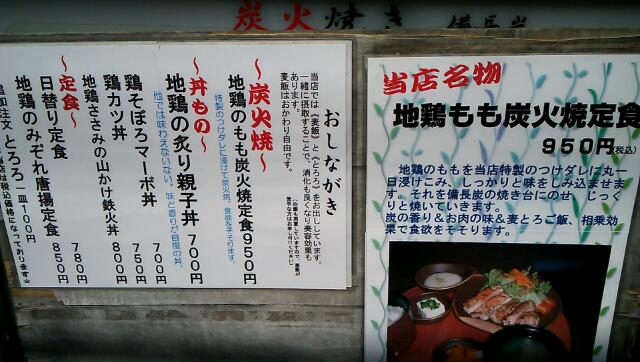 炭火焼き 備長炭
おしながき
当店では《麦飯》と《とろろ》をお出ししています。
一緒に摂取することで、消化も良くなり美容効果も
あります。
麦飯はおかわり自由です。
～炭火焼～
地鶏のもも炭火焼定食 950円
特製のつけダレに浸けて炭火焼。食欲をそそります。
～丼もの～
地鶏の炙り親子丼 700円
他では味わえない、味と香りが自慢の丼。
鶏そぼろマーボ丼 700円
鶏カツ丼 750円
地鶏ささみの山かけ鉄火丼 800円
～定食～
日替り定食 780円
地鶏のみぞれ唐揚定食 850円
追加注文 とろろ一皿100円
当店は税込価格になっております
当店名物
地鶏もも炭火焼定食
950円(税込)
地鶏のももを当店特製のつけダレに丸一
日浸けこみ、しっかりと味をしみ込ませま
す。それを備長炭の焼き台にのせ、じっく
りと焼いていきます。
炭の香り&お肉の味&麦とろご飯、相乗効
果で食欲をそそります。